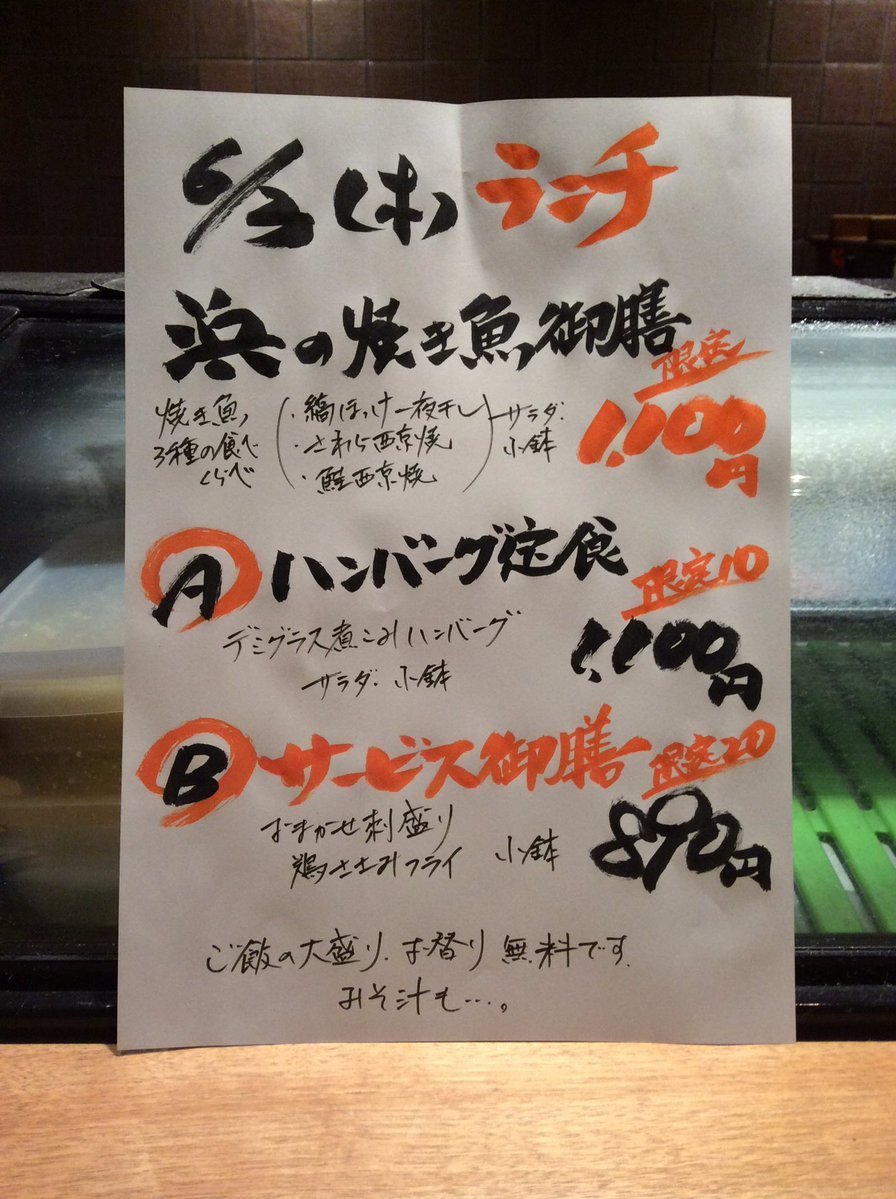 6/2(木)ランチ
浜の焼き魚御膳
限定
1,100円
焼き魚
3種の食べ
くらべ
(・縞ほっけ一夜干し
・さわら西京焼
・鮭西京焼)
サラダ・
小鉢
A ハンバーグ定食
限定10
デミグラス煮こみハンバーグ
サラダ・小鉢
1,100円
B サービス御膳
限定20
おまかせ刺盛り
鶏ささみフライ 小鉢
890円
ご飯の大盛り、お替り無料です
みそ汁も…。